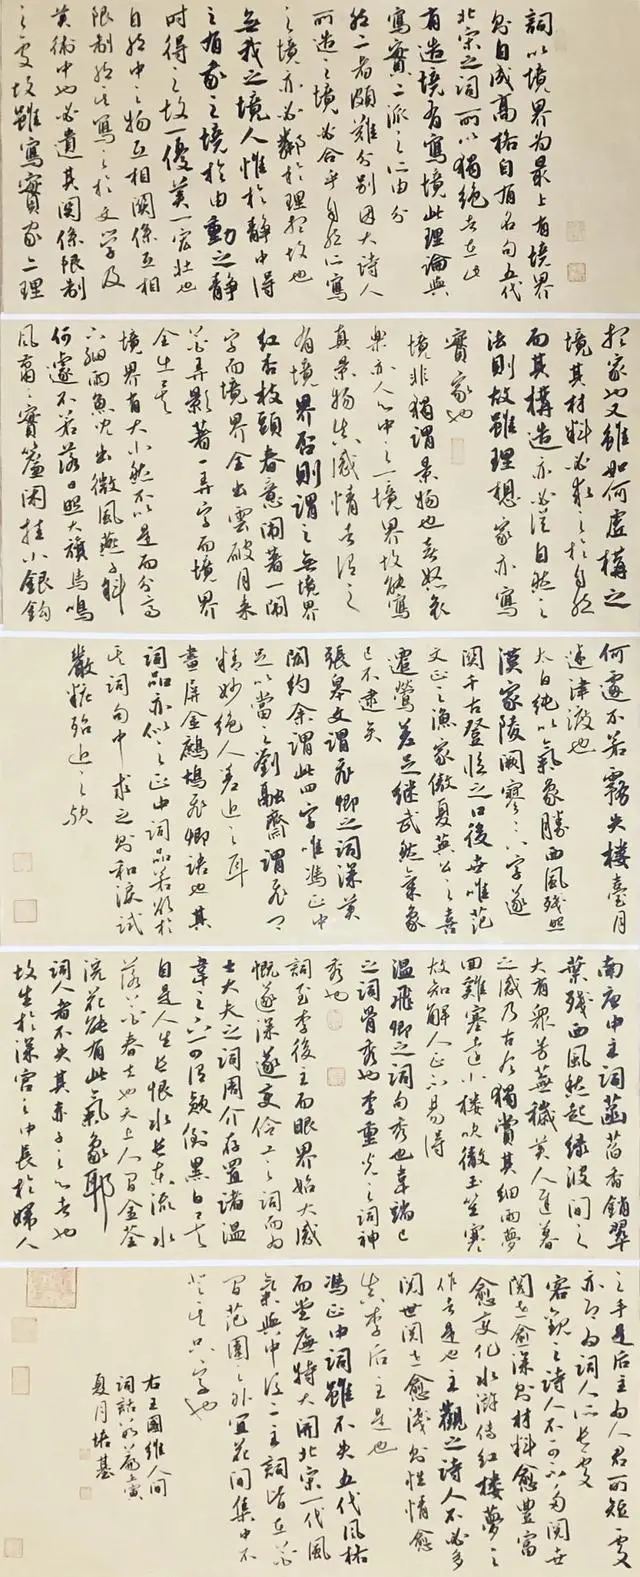 詞以境界為最上有境界
則自成高格自有名句五代
北宋之詞所以獨絕者在此
有造境有寫境此理論與
寫實二派之所由分
然二者頗難分別因大詩人
所造之境必合乎自然所寫
之境亦必鄰於理想故也
無我之境人惟於靜中得
之有我之境於由動之靜
時得之故一優美一宏壯也
自然中之物互相關係互相
限制然其寫之於文學及
美術中也必遺其關係限制
之處故雖寫實家亦理
想家也又雖如何虛構之
境其材料必求之於自然
而其構造亦必從自然之
法則故雖理想家亦寫
實家也
境非獨謂景物也喜怒哀
樂亦人心中之一境界故能寫
真景物真感情者謂之
有境界否則謂之無境界
紅杏枝頭春意鬧著一鬧
字而境界全出雲破月來
花弄影著一弄字而境界
全出矣
境界有大小然不以是而分高
下細雨魚兒出微風燕子斜
何遽不若落日照大旗馬鳴
風蕭蕭寶簾閑挂小銀鉤
何遽不若霧失樓臺月
迷津渡也
太白純以氣象勝西風殘照
漢家陵闕寥寥八字遂
關千古登臨之口後世唯范
文正之漁家傲夏英公之喜
遷鶯差足繼武然氣象
已不逮矣
張皋文謂飛卿之詞深美
閎約余謂此四字唯馮正中
足以當之劉融齋謂飛卿
精妙絕人差近之耳
畫屏金鷓鴣飛卿語也其
詞品亦似之正中詞品若欲於
其詞句中求之則和淚試
嚴妝殆近之歟
南唐中主詞菡萏香銷翠
葉殘西風愁起綠波間
大有眾芳蕪穢美人遲暮
之感乃古今獨賞其細雨夢
回雞塞遠小樓吹徹玉笙寒
故知解人正不易得
溫飛卿之詞句秀也韋端己
之詞骨秀也李重光之詞神
秀也
詞至李後主而眼界始大感
慨遂深遂變伶工之詞而為
士大夫之詞周介存置諸溫
韋之下可謂顛倒黑白矣
自是人生長恨水長東流水
落花春去也天上人間金荃
浣花能有此氣象耶
詞人者不失其赤子之心者也
故生於深宮之中長於婦人
之手是后主為人君所短處
亦即為詞人所長處
客觀之詩人不可不多閱世
閱世愈深則材料愈豐富
愈變化水滸傳紅樓夢之
作者是也主觀之詩人不必多
閱世閱世愈淺則性情愈
真李后主是也
馮正中詞雖不失五代風格
而堂廡特大開北宋一代風
氣與中後二主詞皆在花
間范圍之外宜花間集中不
登其隻字也
右王國維人間
詞話
夏月培基